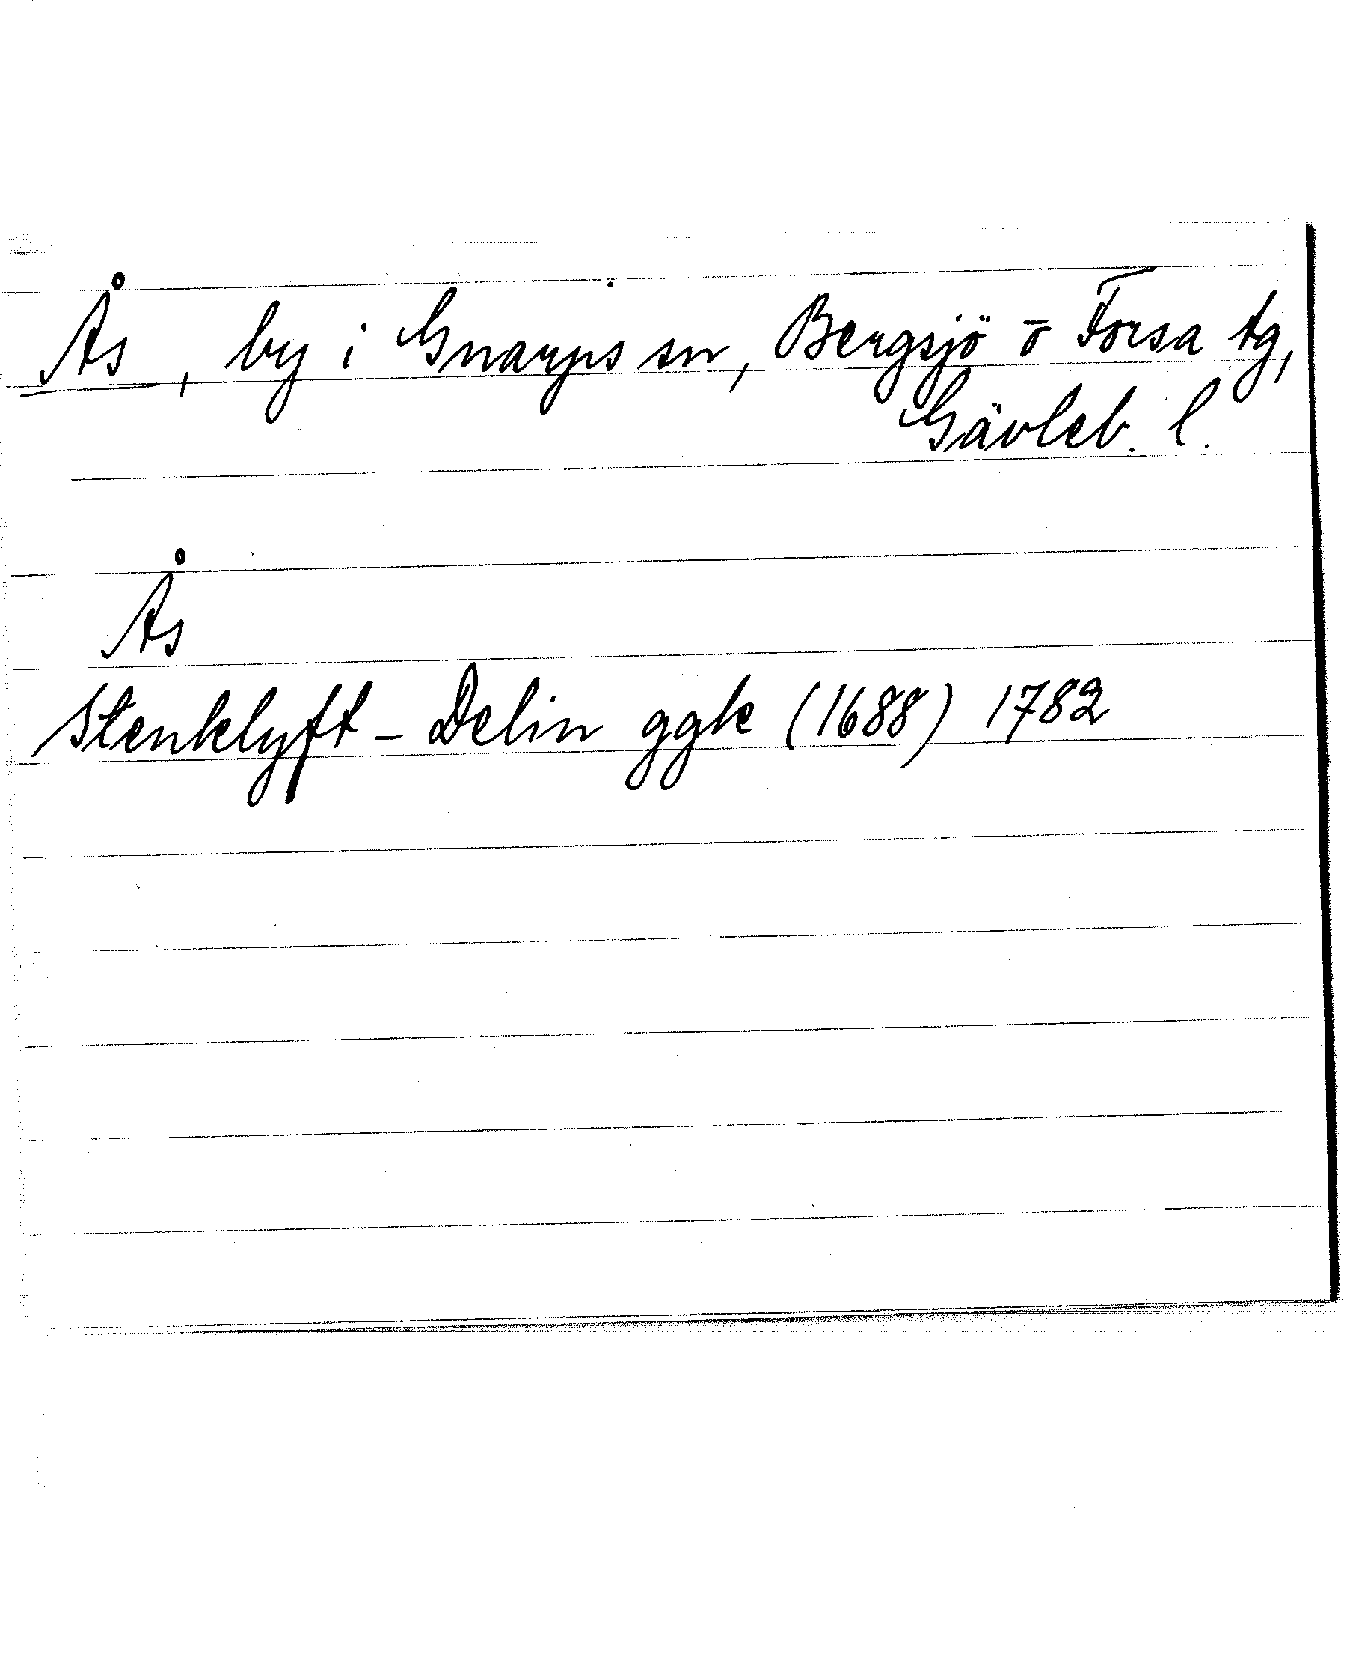 Ås, by i Gnarps sn, Bergsjö o Forsa tg,
Gävleb. l.
Ås
Stenklyft - Delin ggk (1688) 1782